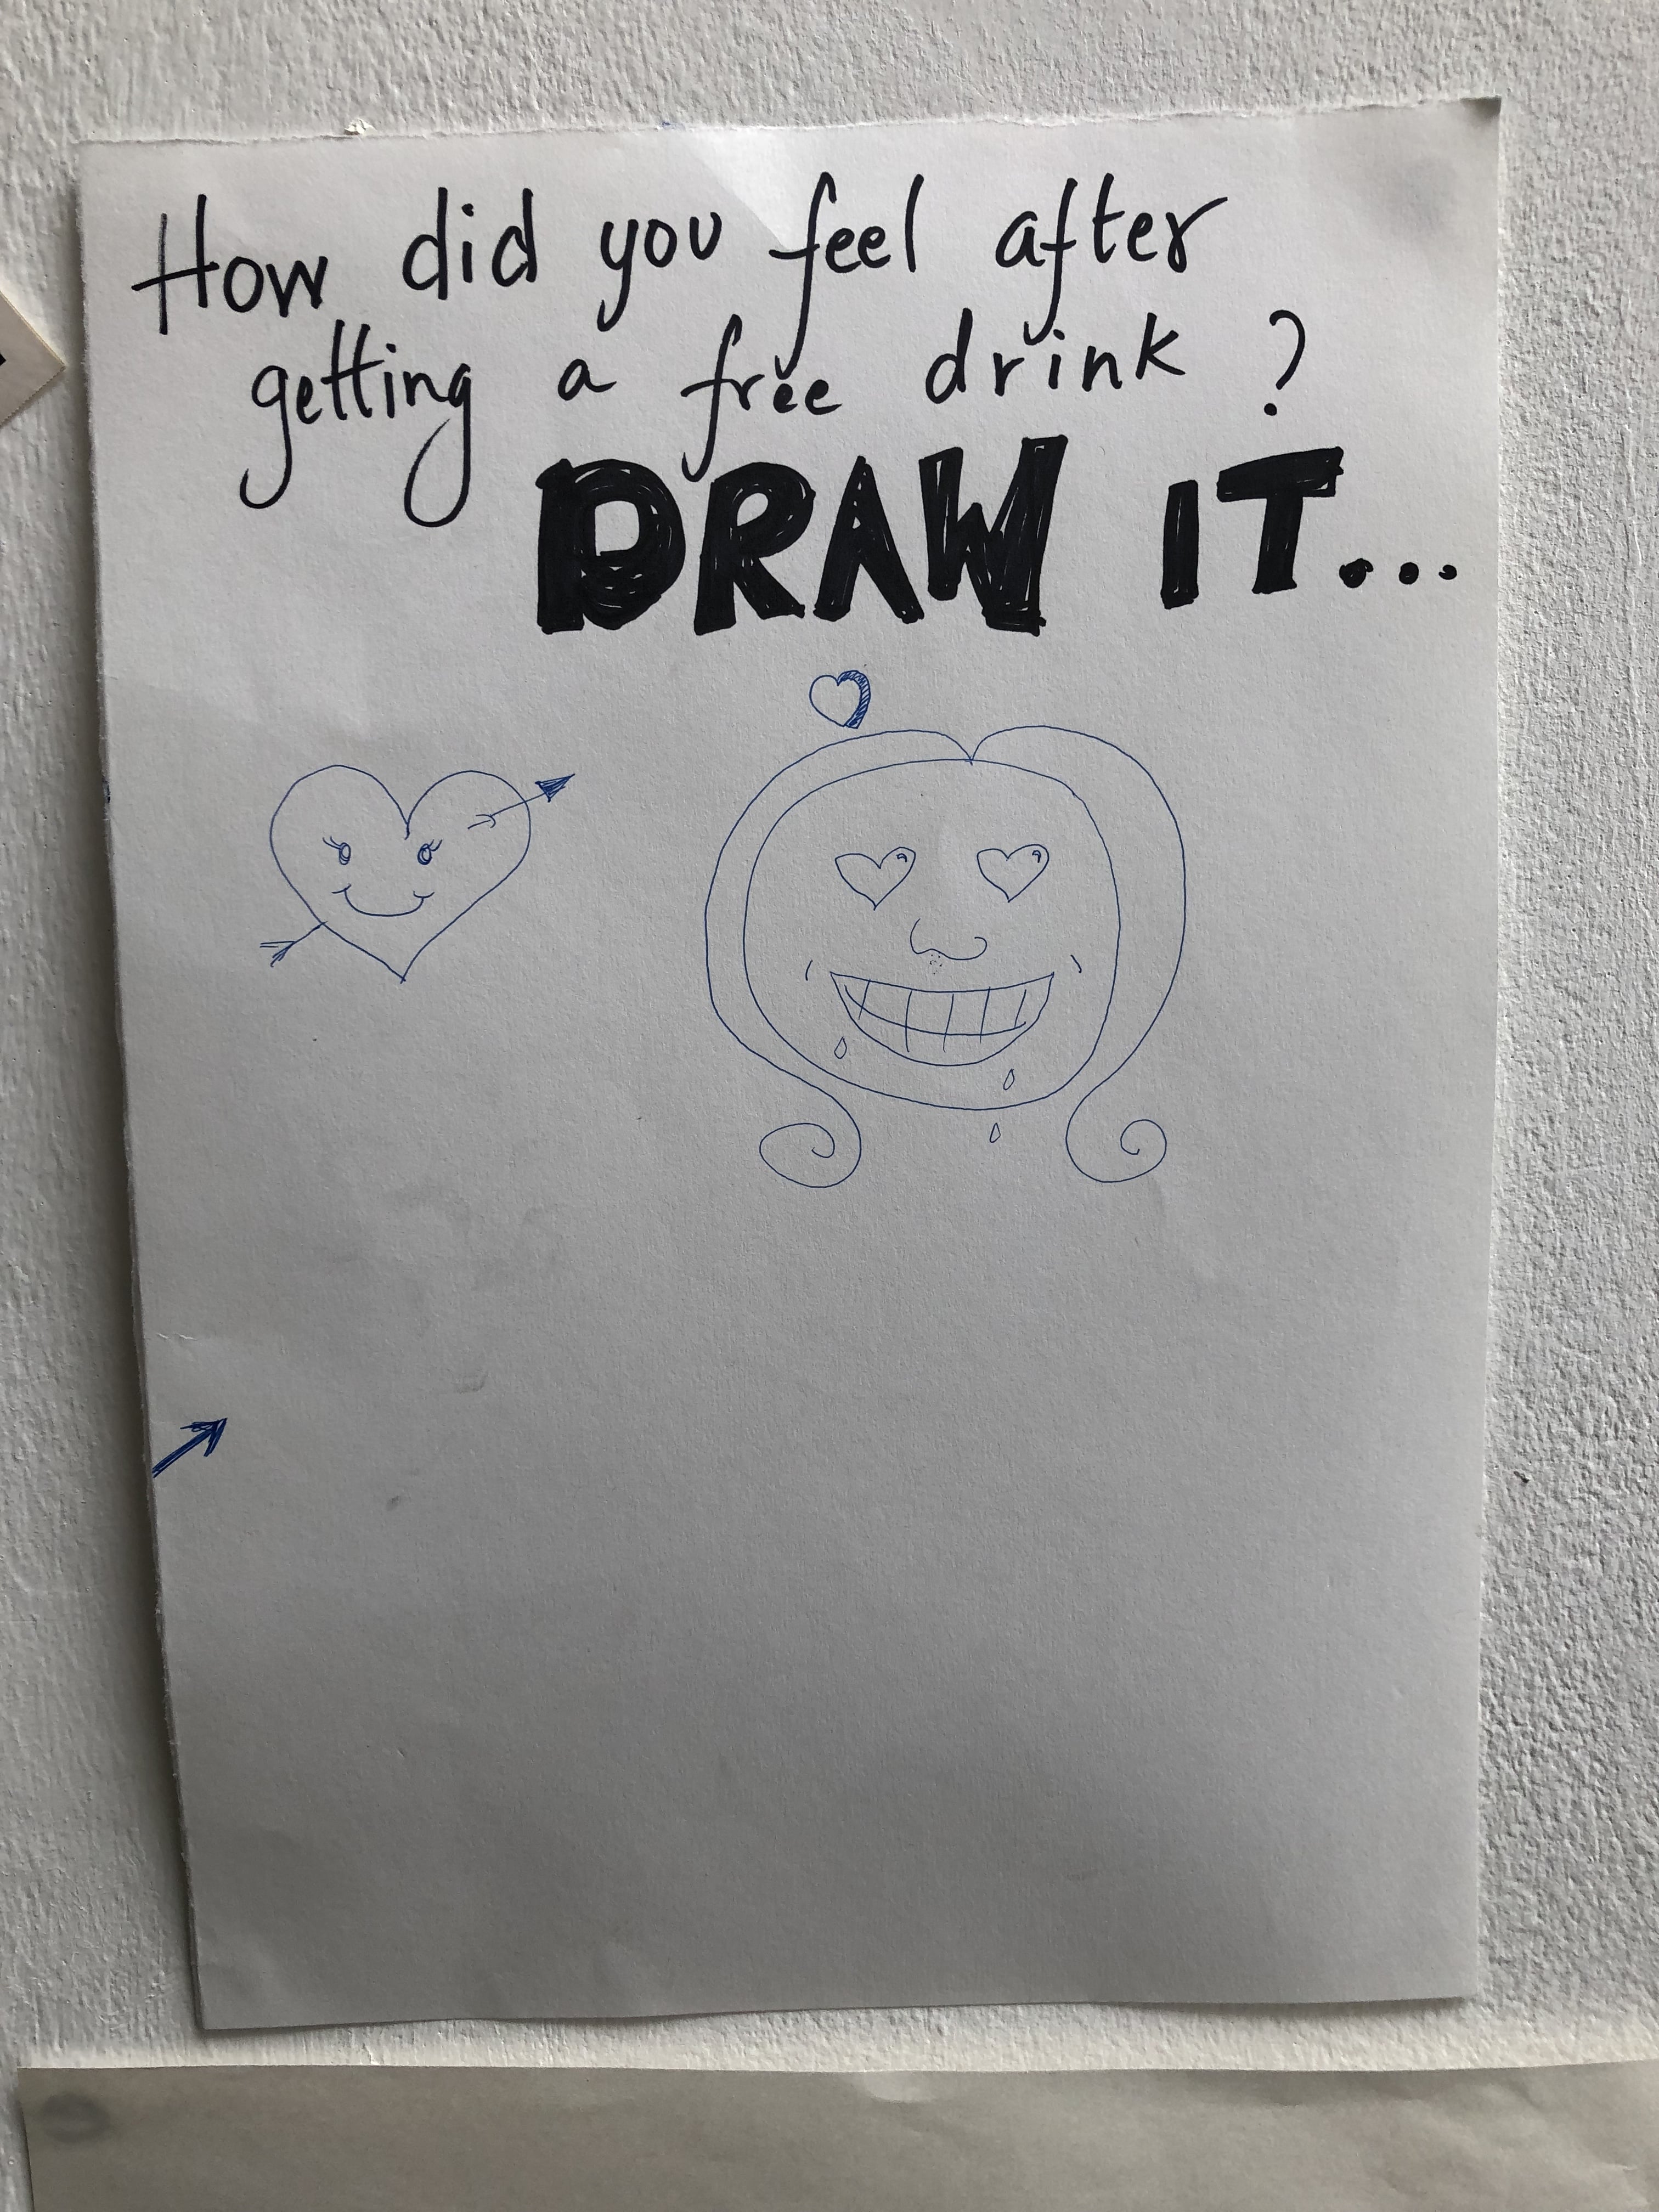 How did you feel after
getting a free drink ?
DRAW IT...